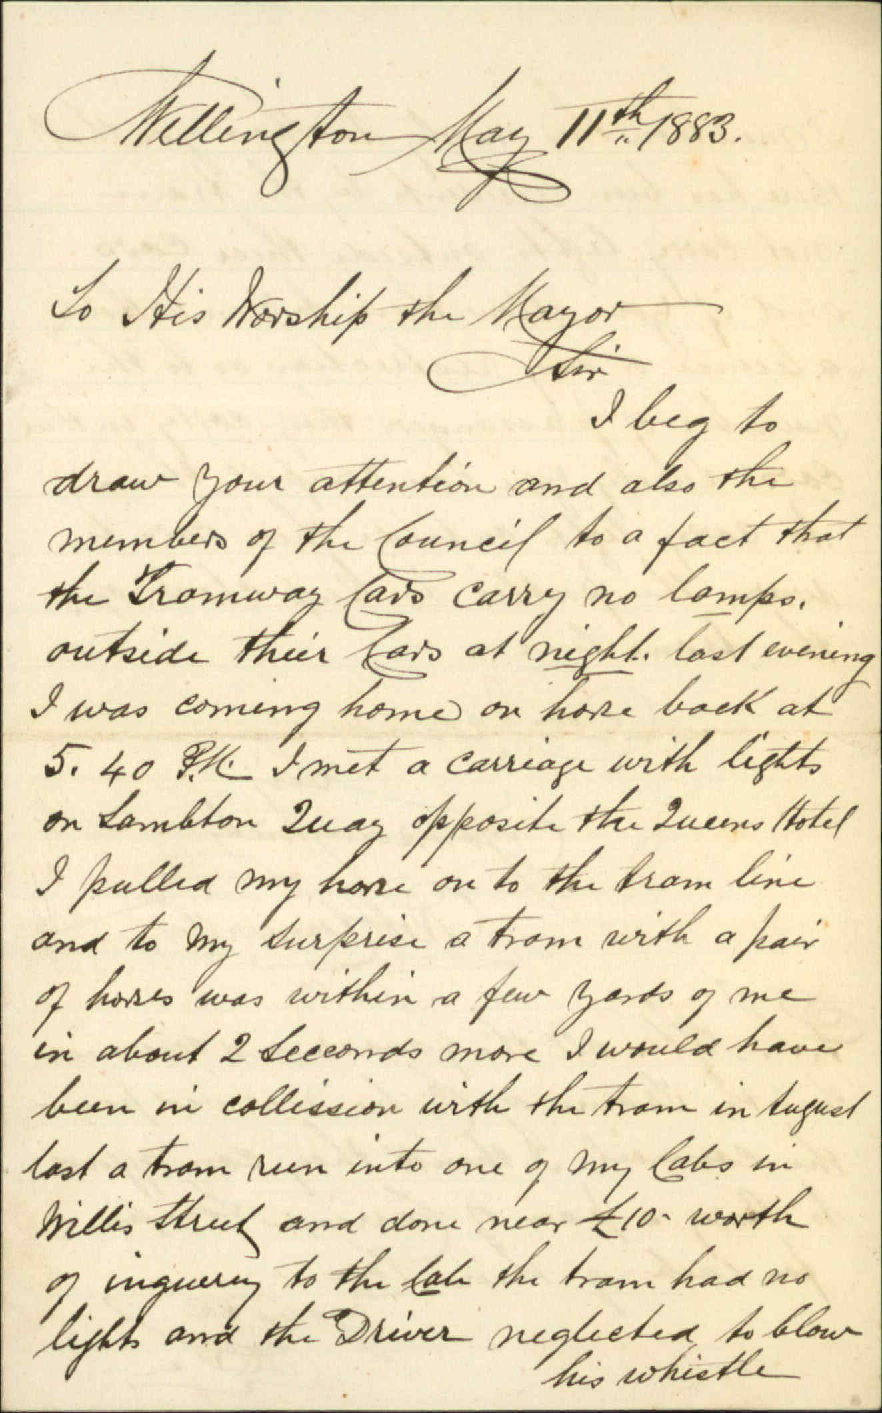 Wellington May 11th 1883.
To His Worship the Mayor
Sir
I beg to
draw your attention and also the
members of the Council to a fact that
the Tramway Cars carry no lamps.
outside their Cars at night. last evening
I was coming home on horse back at
5. 40 P.M. I met a carriage with lights
on Lambton Quay opposite the Queens Hotel
I pulled my horse on to the tram line
and to my surprise a tram with a pair
of horses was within a few yards of me
in about 2 Secconds more I would have
been in collission with the tram in August
last a tram run into one of my Cabs in
Willis Street and done near £10- worth
of inguerey to the Cab the tram had no
lights and the Driver neglected to blow
his whistle